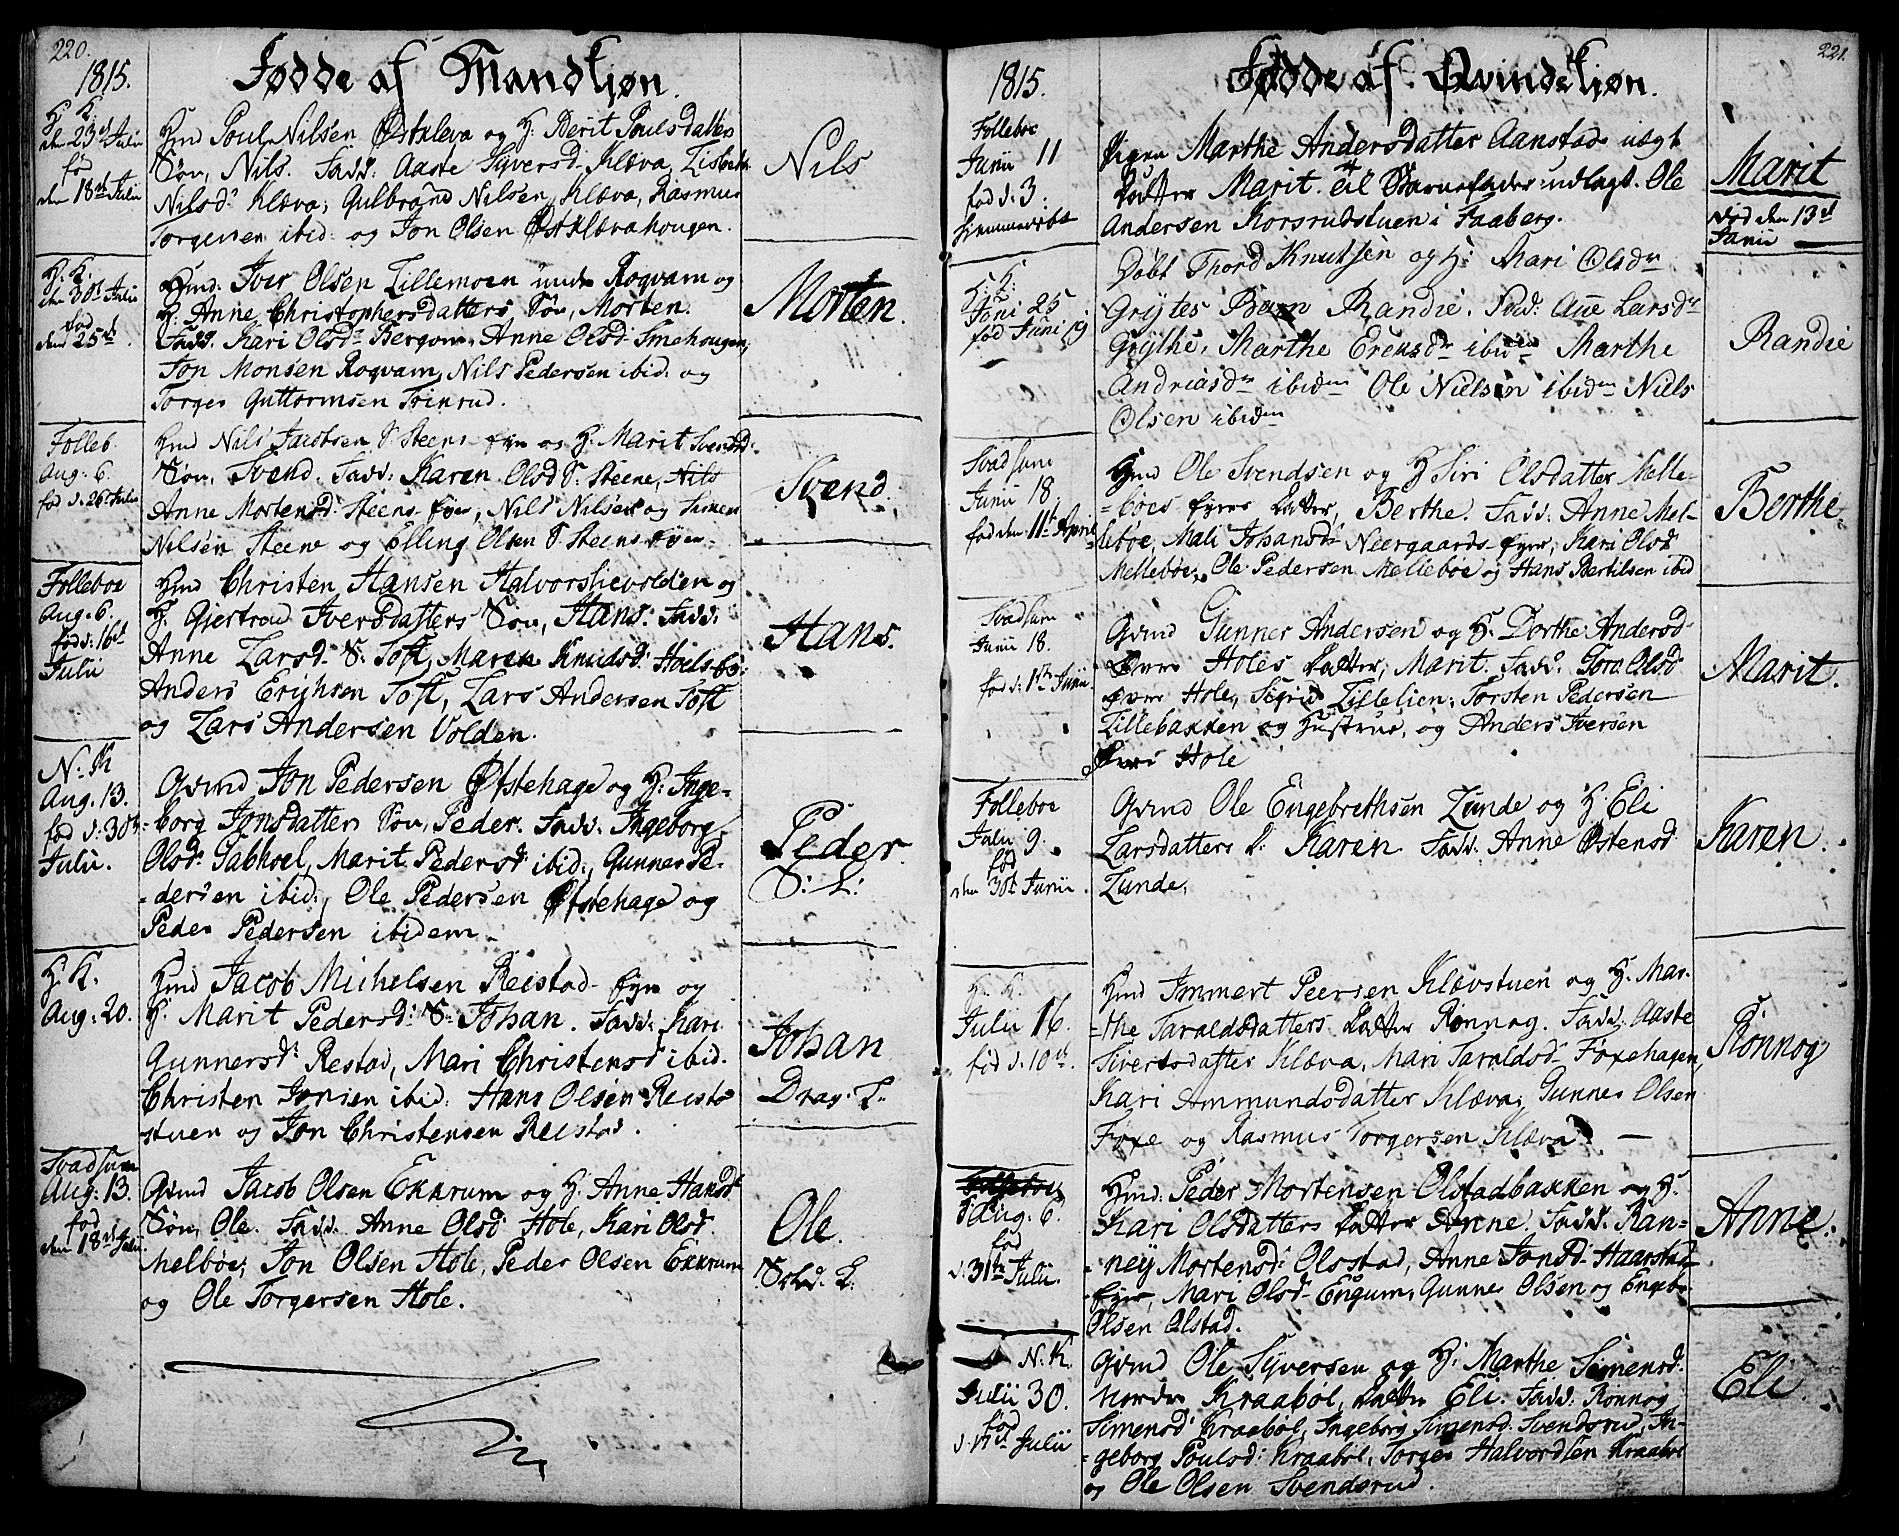 220.
1815.
Fødde af Mandkjøn.
H. K.
den 23d Julii
fød
den 18de Julii
Hmd Poul Nilsen Østkleva og H: Berit Poulsdatters
Søn, Nils. Fadd: Aaste Syversd. Klæva, Lisbeth
Nilsd: Klæva, Gulbrand Nilsen Klæva, Rasmus
Torgersen ibid: og Jon Olsen Østklævahougen.
Nils
H. K.
den 30t Julii
fød
dend 25d
Hmd: Iver Olsen Lillemoen under Roqvam og
H. Anne Christophersdatters Søn, Morten.
Fadd. Kari Olsd: Bergom, Anne Olsd Smehougen,
Jon Monsen Roqvam, Nils Pedersen ibid: og
Torger Guttormsen Trinrud.
Morten.
Folleb
Aug: 6.
fød d. 26t Julii
Hmd Nils Jacobsen S. Steens eye og H. Marit Svendsd.
Søn, Svend. Fadd: Karen Olsd S. Steene, Nils
Anne Mortensd. Steens eye, Nils Nilsen og Simen
Nilsen Steene og Elling Olsen S. Steens eye.
Svend.
Folleboe
Aug. 6.
fød d: 16d
Julii
Hmd Christen Hansen Halvorslievolden og
H. Gjertrud Iversdatters Søn, Hans. Fadd:
Anne Larsd S. Toft, Maren Knudsd: Hoelsbø:
Anders Erichsen Toft, Lars Andersen Toft
og Lars Andersen Volden.
Hans.
N: K
Aug. 13.
fød d. 30te
Julii.
Gvmd Jon Pedersen Øfstehage og H: Inge-
-borg Jonsdatters Søn, Peder. Fadd. Ingeborg
Olsd: Gabhoel, Marit Pedersd: ibid:, Gunner Pe-
-dersen ibid:, Ole Pedersen Øfstehage og
Peder Pedersen ibidem.
Peder.
S: L:
H. K.
Aug: 20.
Hmd Jacob Michelsen Reistad eye og
H. Marit Pedersd: S: Johan. Fadd: Kari
Gunnersd: Restad, Mari Christensd ibid.
Christen Jonsen ibid: Hans Olsen Reistø
stuen og Jon Christensen Reistad.
Johan
Drag. L.
Svadsum
Aug: 13.
fød
den 18d Julii.
Gvmd Jacob Olsen Exxrum og H. Anne Hansd
Søn, Ole. Fadd. Anne Olsd Hole, Kari Olsd
Melbøe, Jon Olsen Hole, Peder Olsen Exxrum
og Ole Torgersen Hole.
Ole.
221.
1815.
Fødde af Qvindekjøn.
Folleboe
Junii 11
fød d. 3:
hiemmedøbt
Pigen Marthe Andersdatter Aanstads uægt
Datter Marit. til Barnefader udlagt. Ole
Andersen Korsrudstuen i Faaberg.
Marit
død den 13d
Junii
H: K:
Juni 25
fød Juni 19
Døbt Thord Knutsen og H: Mari Olsdr
Grytes Barn Randie. Fad: Ane Larsdr
Grythe, Marthe Erensdr ibidem Marthe
Andriasdr ibidm Ole Nielsen ibidm Niels
Olsen ibidm
Randie
Svadsum
Junii 18.
fød den 11te April
Hmd Ole Svendsen og H Siri Olsdatter Melle-
-bøes eyes Datter, Berthe. Fadd: Anne Mel-
lebøe, Mali Johansd: Neergaards-eyes, Kari Olsd
Mellebøe, Ole Pedersen Mellebøe og Hans Bertilsen ibid
Berthe.
Svadsum
Junii 18.
fød d: 1te Junii
Gvmd Gunner Andersen og H. Dorthe Andersd
Øvre Holes Datter, Marit. Fadd. Gora Olsd
øvre Hole, Sigrid Lillelien, Torsten Pedersen
Lillebakken og Hustrue, og Anders Iversen
Øvre Hole
Marit.
Folleboe
Julii 9.
fød
den 30t Junii.
Gvmd Ole Engebrethsen Lunde og H. Eli
Larsdatters D: Karen. Fadd: Anne Østensd
Lunde,
Karen.
H. K.
Julii 16.
fød d. 10de.
Hmd Immert Peersen Klævstuen og H. Mar-
-the Taraldsdatters Datter Rønnog. Fadd. Aaste
Sivertsdatter Klæva, Mari Taraldsd. Foxehagen,
Kari Ammundsdatter Klæva, Gunner Olsen
Foxe og Rasmus Torgersen Klæva.
Rønnog
Aug. 6.
fød
d. 31te Julii.
Hmd: Peder Mortensen Olstadbakken og H.
Kari Olsdatters Datter Anne. Fadd. Ran-
-ney Mortensd. Olsstad, Anne Jonsd. Haarstad-
-eyes, Mari Olsd- Engum, Gunner Olsen og Engebr.
Olsen Olstad.
Anne.
N. K.
Julii 30.
fød
d. 17d Julii
Gvmd Ole Syversen og H: Marthe Simensd.
nordre Kraabøl, Datter Eli. Fadd. Rønnog
Simensd Kraabøl, Ingeborg Simensd. Svendsrud, In-
-geborg Poulsd: Kraabøl, Torger Halvordsen Kraabøl
og Ole Olsen Svendsrud.
Eli.